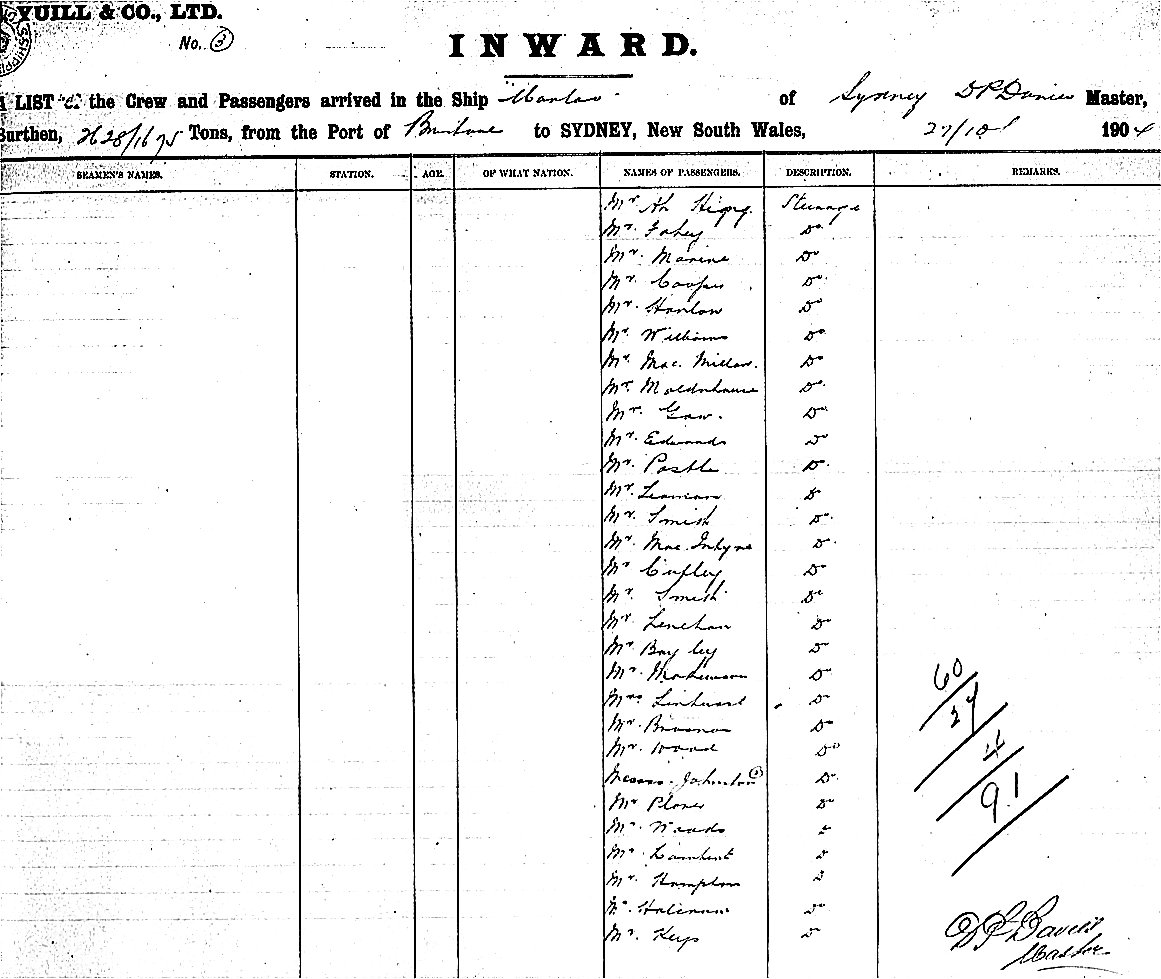 YUILL & CO., LTD.
No. 3
INWARD.
A LIST of the Crew and Passengers arrived in the Ship of Sydney D P Davies Master,
Burthen, 2628/1675 Tons, from the Port of Brisbane to SYDNEY, New South Wales, 27/10 1904
SEAMEN'S NAMES. STATION. AGE. OF WHAT NATION. NAMES OF PASSENGERS. DESCRIPTION. REMARKS.
Mr Ah Steerage
Mr. Fahey Do
Mr. Marine Do
Mr. Cooper Do
Mr. Hanlon Do
Mr. Williams Do
Mr. Mac. Millan. Do
Mr. Moldnhause Do
Mr. Gow. Do
Mr. Edwards Do
Mr. Postle Do
Mr. Do
Mr. Smith Do
Mr. Mac. Intyre Do
Mr Cupley Do
Mr. Smith Do
Mr. Lenehan Do
Mr. Bayley Do
Mr. Do
Mrs Do
Mr. Brosnan Do
Mr. Wood Do
Messrs. Johnston (2) Do
Mr Plover Do
Mr. Woods
Mr. Lambert
Mr. Hampton
Mr. Do
Mr. Keys Do
60
27
4
91
D P Davies
Master